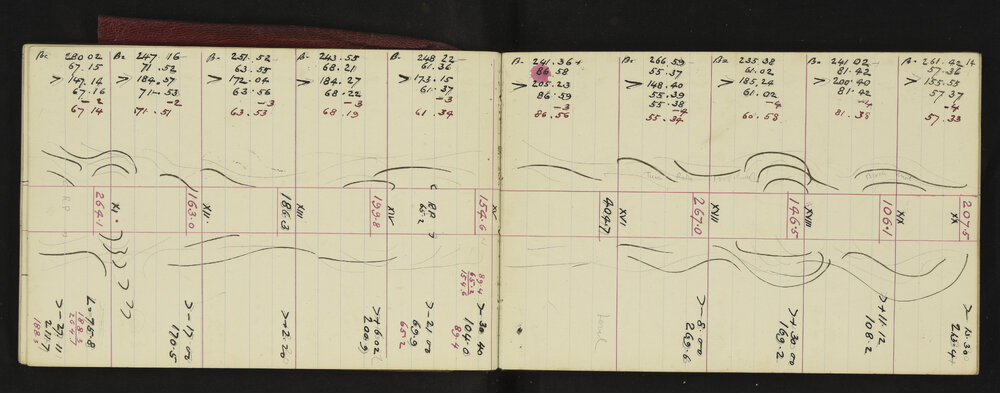 B- 280 02
67.15
> 147.14
67.16
-2
67.14
B- 247 16
71.52
> 184.37
71-53
-2
71.51
B- 251.52
63.55
> 172.04
63.56
-3
63.53
B- 243.55
68.21
> 184.27
68.22
-3
68.19
B- 248 22
61.36
> 173.15
61.37
-3
61.34
B- 241.36+
86.58
> 205.23
86.59
-3
86.56
B- 266.59
55.37
> 148.40
55.39
55.38
-4
55.34
B- 235.38
61.02
> 185.24
61.02
-4
60.58
B- 241 02
81.42
> 200.40
81.42
-4
81.38
B- 261.42 14
57.36
> 155.55
57.37
-4
57.33
264.1
XI
163.0
XII
186.3
XIII
199.8
XIV
RP
65.2
154.6
XV
404.7
XVI
267.0
XVII
146.5
XVIII
106.1
207.5
XX
188.3
211.7
> - 27.11
L = 75.8
> - 17.00
170.5
> + 2.20
> + 6.02
200.9
> - 21.00
69.9
65.2
> - 30.40
104.0
89.4
89.4
65.2
154.6
> - 8.00
269.6
> + 30.00
169.2
> + 11.12
108.2